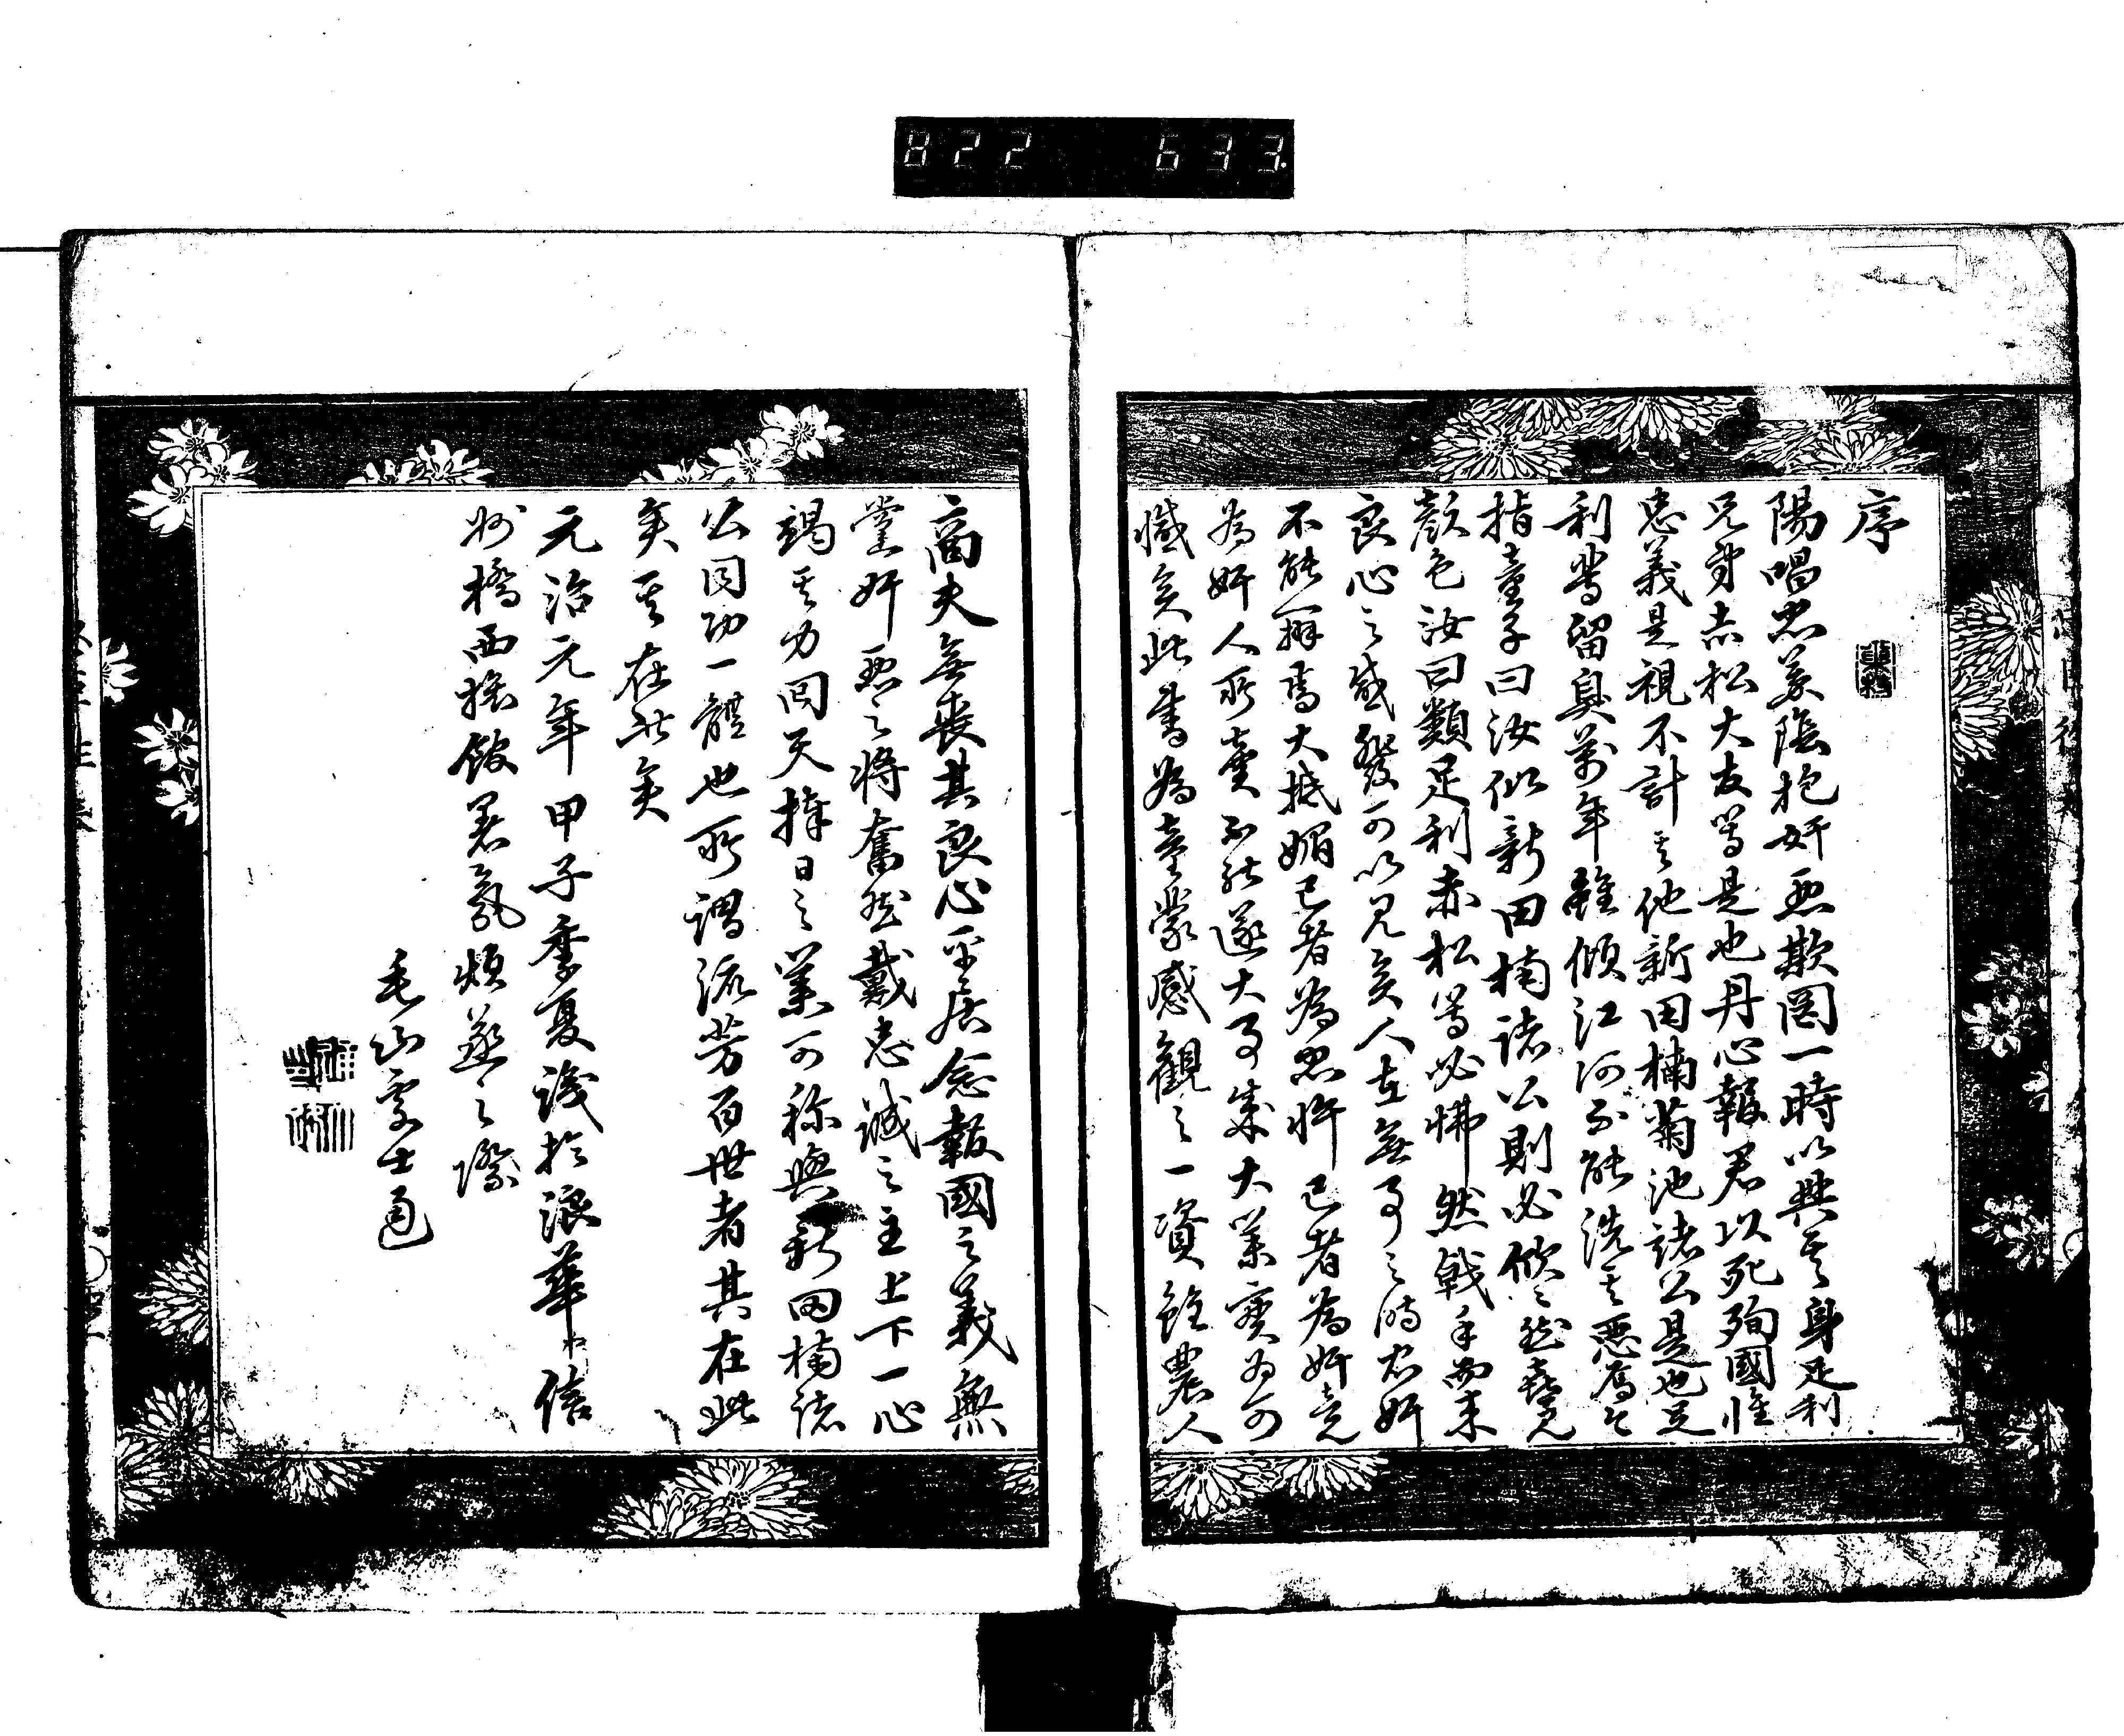 822 633
序
陽唱忠義陰抱奸惡欺罔一時以興其身足利
兄弟赤松大友等是也丹心報君以死殉國惟
忠義是視不計其他新田楠菊池諸公是也足
利輩留臭萬年雖傾江河不能洗其惡焉
指童子曰汝似新田楠諸公則必欣然喜見
顏色汝曰類足利赤松等必怫然戟手而来
良心之感發可以見矣人在無事之時忠奸
不能辨焉大抵媚己者為忠忤己者為奸竟
為奸人所賣不能遂大事策大業實為可
慨矣此書為童蒙感觀之一資雖農人
商夫無喪其良心平居念報國之義無
黨奸惡之將奮然戴忠誠之主上下一心
竭其力回天擇日之業可称與新田楠諸
公同功一體也所謂流芳百世者其在此
矣其在此矣
元治元年甲子季夏識於浪華 信
州橋西旅館暑氣煩蒸之際
毛山處士